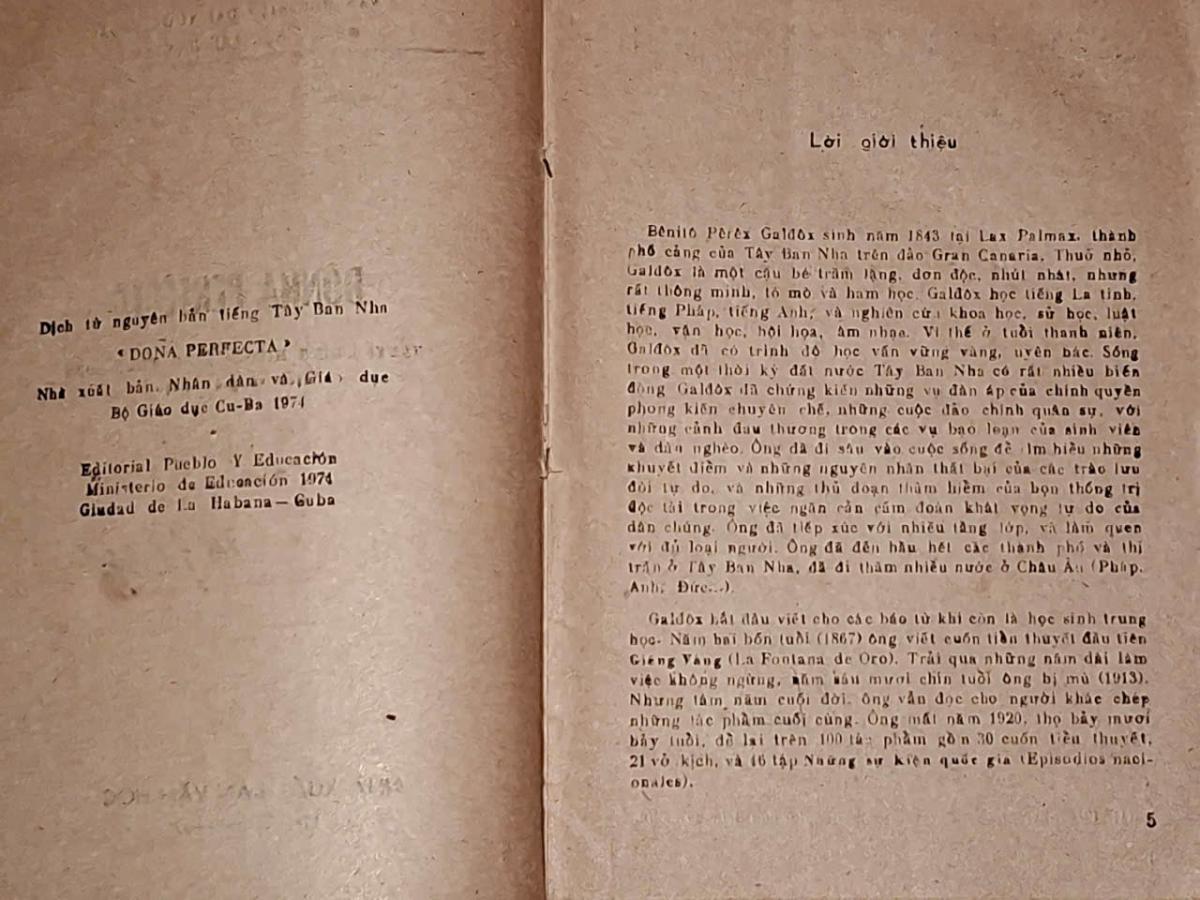 Dịch từ nguyên bản tiếng Tây Ban Nha
« DOÑA PERFECTA »
Nhà xuất bản Nhân dân và Giáo dục
Bộ Giáo dục Cu-Ba 1974
Editorial Pueblo Y Educación
Ministerio de Educación 1974
Ciudad de La Habana — Cuba
Lời giới thiệu
Bênitô Pêrêx Galđôx sinh năm 1843 tại Lax Palmax, thành
phố cảng của Tây Ban Nha trên đảo Gran Canaria. Thuở nhỏ,
Galđôx là một cậu bé trầm lặng, đơn độc, nhút nhát, nhưng
rất thông minh, tò mò và ham học. Galđôx học tiếng La tinh,
tiếng Pháp, tiếng Anh; và nghiên cứu khoa học, sử học, luật
học, văn học, hội họa, âm nhạc. Vì thế ở tuổi thanh niên,
Galđôx đã có trình độ học vấn vững vàng, uyên bác. Sống
trong một thời kỳ đất nước Tây Ban Nha có rất nhiều biến
động Galđôx đã chứng kiến những vụ đàn áp của chính quyền
phong kiến chuyên chế, những cuộc đảo chính quân sự, với
những cảnh đau thương trong các vụ bạo loạn của sinh viên
và dân nghèo. Ông đã đi sâu vào cuộc sống để tìm hiểu những
khuyết điểm và những nguyên nhân thất bại của các trào lưu
đòi tự do, và những thủ đoạn thâm hiểm của bọn thống trị
độc tài trong việc ngăn cản cấm đoán khát vọng tự do của
dân chúng. Ông đã tiếp xúc với nhiều tầng lớp, và làm quen
với đủ loại người. Ông đã đến hầu hết các thành phố và thị
trấn ở Tây Ban Nha, đã đi thăm nhiều nước ở Châu Âu (Pháp,
Anh, Đức...).
Galđôx bắt đầu viết cho các báo từ khi còn là học sinh trung
học. Năm hai bốn tuổi (1867) ông viết cuốn tiểu thuyết đầu tiên
Giếng Vàng (La Fontana de Oro). Trải qua những năm dài làm
việc không ngừng, năm sáu mươi chín tuổi ông bị mù (1913).
Nhưng tám năm cuối đời, ông vẫn đọc cho người khác chép
những tác phẩm cuối cùng. Ông mất năm 1920, thọ bảy mươi
bảy tuổi, để lại trên 100 tác phẩm gồm 30 cuốn tiểu thuyết,
21 vở kịch, và 46 tập Những sự kiện quốc gia (Episodios naci-
onales).
5